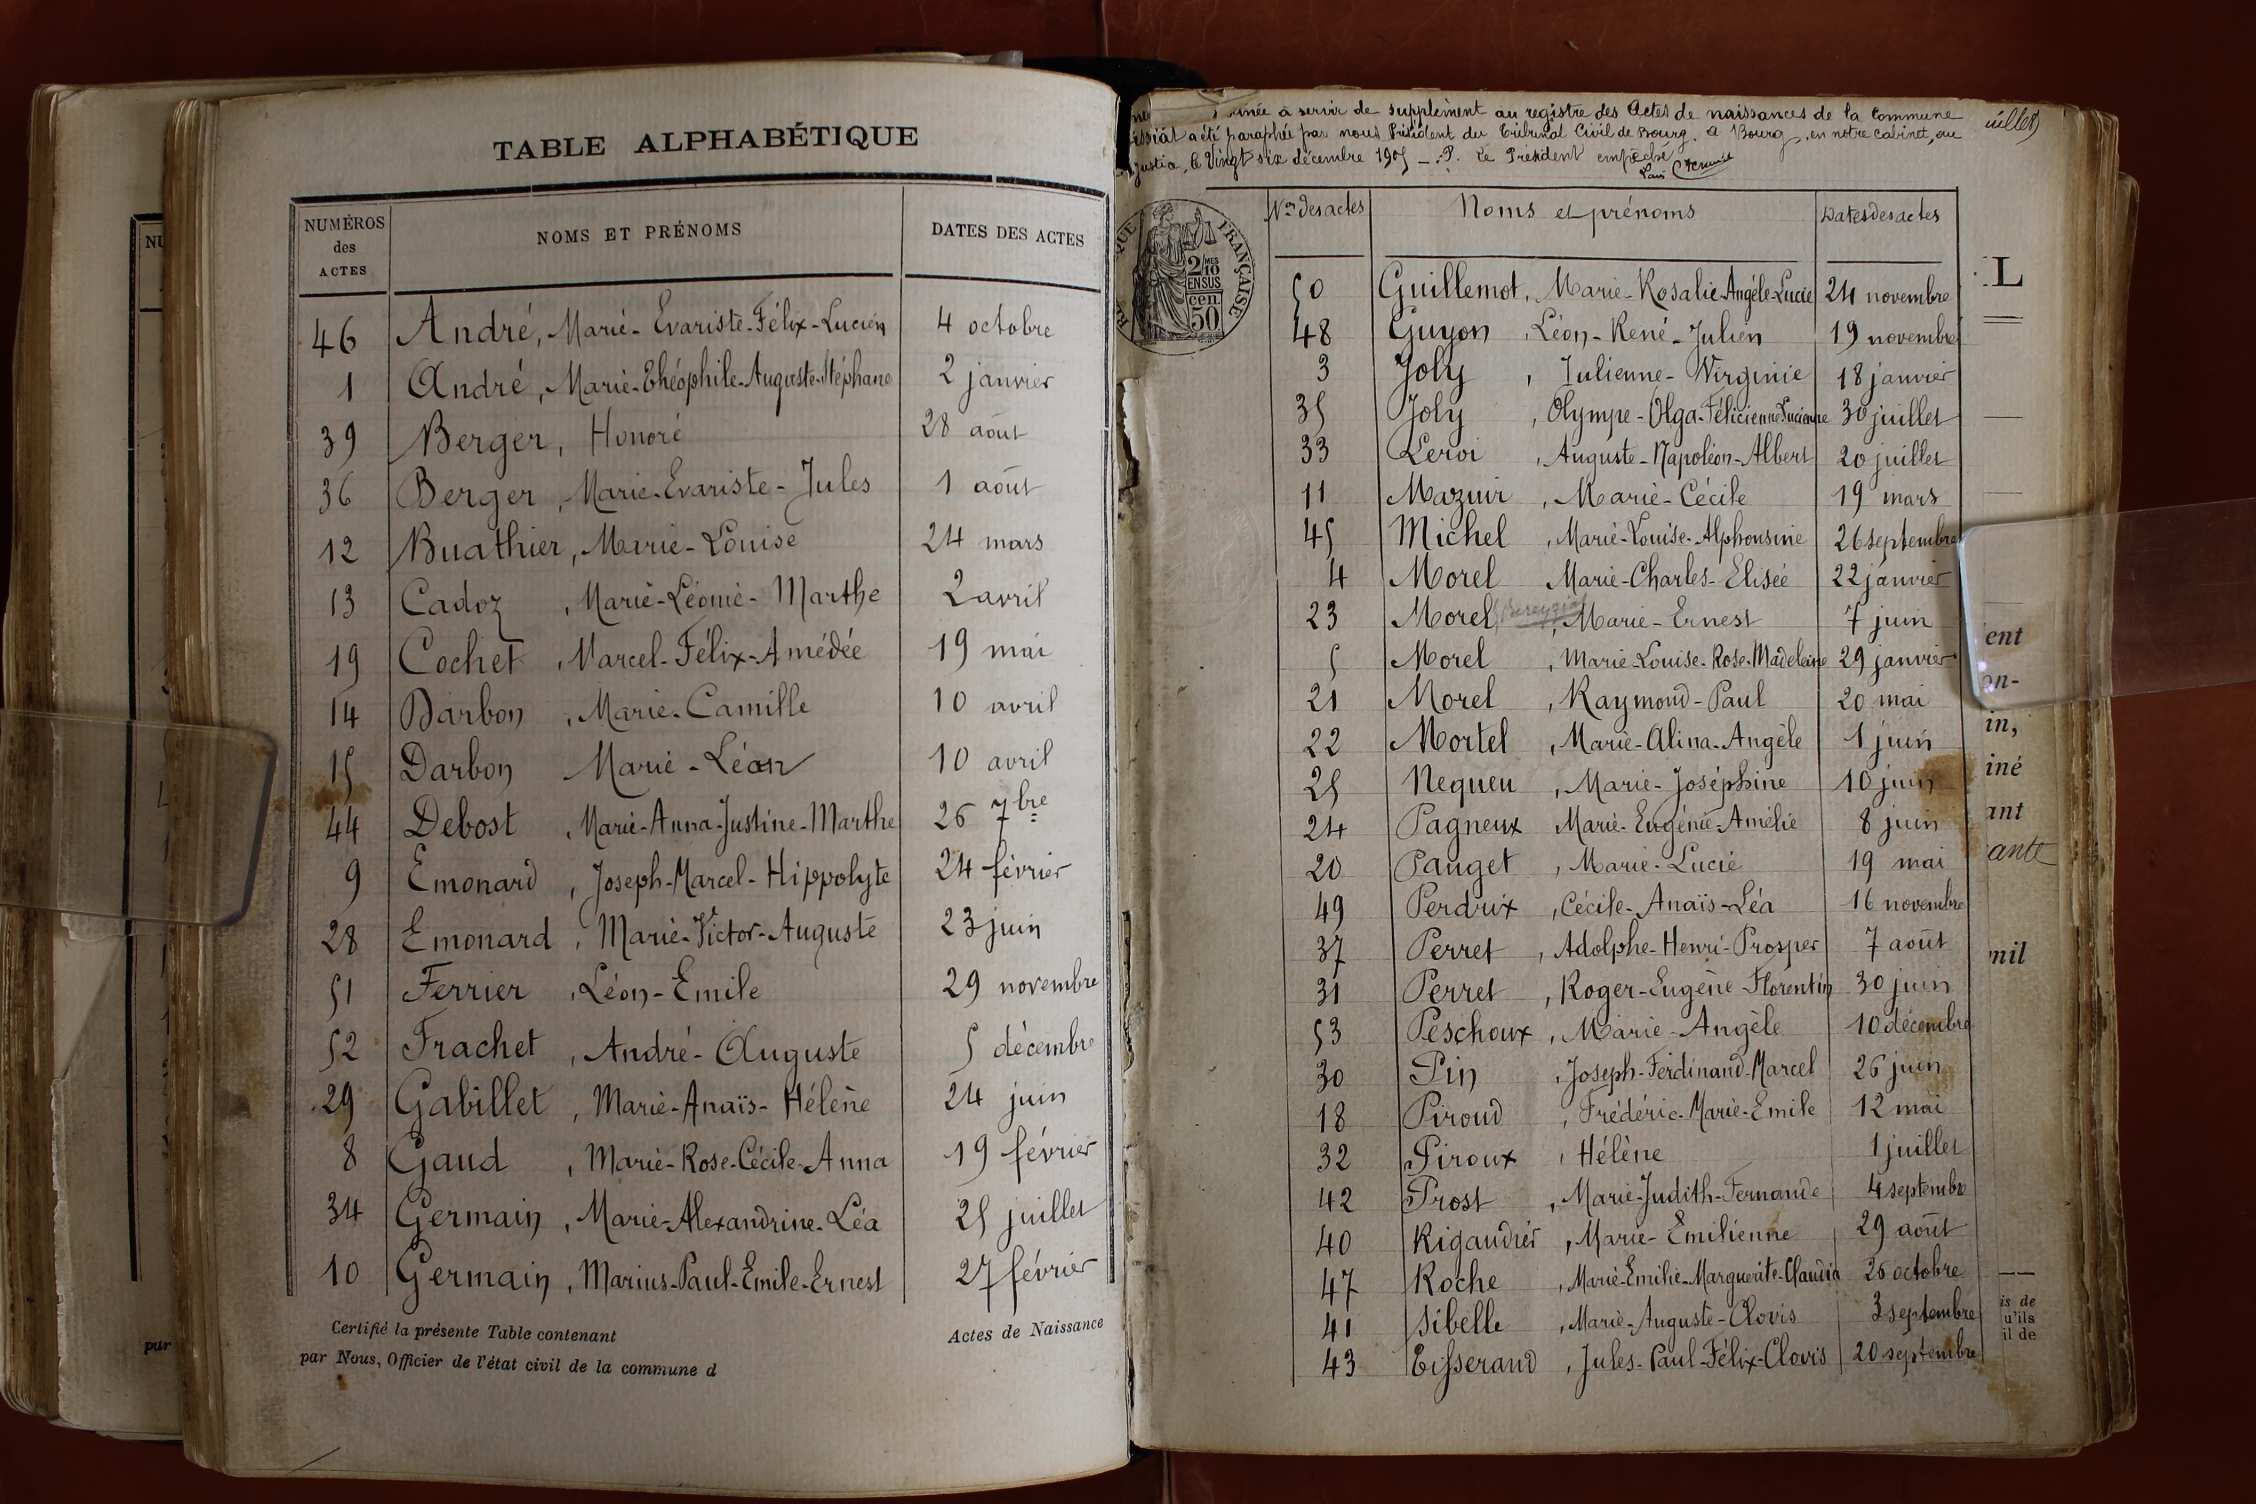 TABLE ALPHABÉTIQUE
NUMÉROS des ACTES NOMS ET PRÉNOMS DATES DES ACTES
46 André, Marie-Evariste-Félix-Lucien 4 octobre
1 André, Marie-Théophile-Auguste-Stéphane 2 janvier
39 Berger, Honoré 28 août
36 Berger, Marie-Evariste-Jules 1 août
12 Buathier, Marie-Louise 24 mars
13 Cadoz, Marie-Léonie-Marthe 2 avril
19 Cochet, Marcel-Félix-Amédée 19 mai
14 Darbon, Marie-Camille 10 avril
15 Darbon Marie-Léon 10 avril
44 Debost, Marie-Anna-Justine-Marthe 26 7bre
9 Emonard, Joseph-Marcel-Hippolyte 24 février
28 Emonard, Marie-Victor-Auguste 23 juin
51 Ferrier, Léon-Emile 29 novembre
52 Frachet, André-Auguste 5 décembre
29 Gabillet, Marie-Anaïs-Hélène 24 juin
8 Gaud, Marie-Rose-Cécile-Anna 19 février
34 Germain, Marie-Alexandrine-Léa 25 juillet
10 Germain, Marius-Paul-Emile-Ernest 27 février
Certifié la présente Table contenant Actes de Naissance
par Nous, Officier de l'état civil de la commune d
à servir de supplément au registre des Actes de naissances de la Commune
a été paraphée par nous Président du Tribunal Civil de Bourg. à Bourg, en notre cabinet, au
Justice, le Vingt six décembre 1905 _ P. Le Président empêché
RÉPUBLIQUE FRANÇAISE
2/10 EN SUS
50 cen.
Nos des actes Noms et prénoms Dates des actes
50 Guillemot, Marie-Rosalie-Angèle-Lucie 24 novembre
48 Guyon, Léon-René-Julien 19 novembre
3 Joly, Julienne-Virginie 18 janvier
35 Joly, Olympe-Olga-Félicienne-Lucienne 30 juillet
33 Leroi, Auguste-Napoléon-Albert 20 juillet
11 Mazuir, Marie-Cécile 19 mars
45 Michel, Marie-Louise-Alphonsine 26 septembre
4 Morel Marie-Charles-Elisée 22 janvier
23 Morel, Marie-Ernest 7 juin
5 Morel, Marie-Louise-Rose-Madeleine 29 janvier
21 Morel, Raymond-Paul 20 mai
22 Mortel, Marie-Alina-Angèle 1 juin
25 Nequeu, Marie-Joséphine 10 juin
24 Pagneux Marie-Eugénie-Amélie 8 juin
20 Pauget, Marie-Lucie 19 mai
49 Perdrix, Cécile-Anaïs-Léa 16 novembre
37 Perret, Adolphe-Henri-Prosper 7 août
31 Perret, Roger-Eugène-Florentin 30 juin
53 Peschoux, Marie-Angèle 10 décembre
30 Pin, Joseph-Ferdinand-Marcel 26 juin
18 Piroud, Frédéric-Marie-Emile 12 mai
32 Piroux, Hélène 1 juillet
42 Prost, Marie-Judith-Fernande 4 septembre
40 Rigaudier, Marie-Emilienne 29 août
47 Roche, Marie-Emilie-Marguerite-Claudia 26 octobre
41 Sibelle, Marie-Auguste-Clovis 3 septembre
43 Tisserand, Jules-Paul-Félix-Clovis 20 septembre